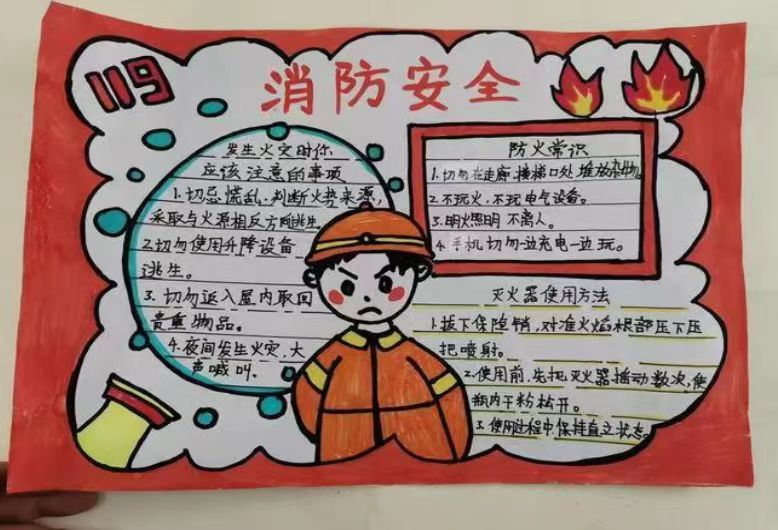 119
消防安全
发生火灾时你
应该注意的事项
1.切忌慌乱.判断火势来源,
采取与火源相反方向逃生.
2.切勿使用升降设备
逃生。
3.切勿返入屋内取回
贵重物品。
4.夜间发生火灾.大
声喊叫.
防火常识
1.切勿在走廊.楼梯口处堆放杂物。
2.不玩火.不玩电气设备。
3.明火照明 不离人。
4.手机切勿一边充电一边玩。
灭火器使用方法
1.拔下保险销,对准火焰根部压下压
把喷射。
2.使用前.先把灭火器摇动数次,使
瓶内干粉松开。
3.使用过程中保持直立状态。